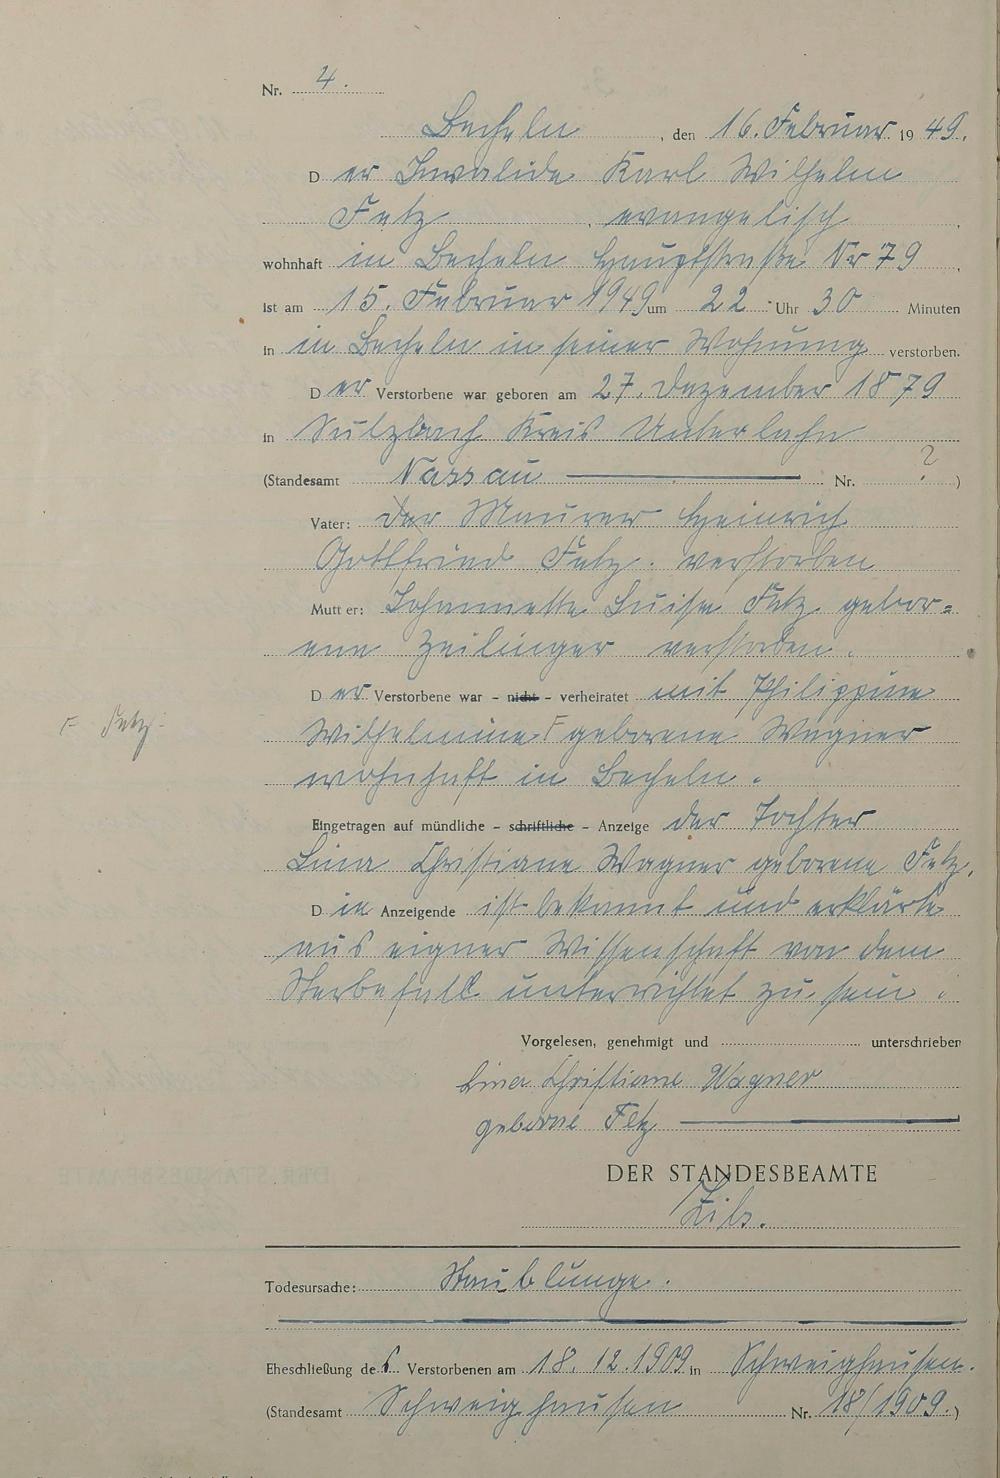 Nr. 4.
Becheln, den 16. Februar 1949.
Der Invalide Karl Wilhelm
Fetz, evangelisch,
wohnhaft in Becheln Hauptstraße Nr 79,
ist am 15. Februar 1949 um 22 Uhr 30 Minuten
in in Becheln in seiner Wohnung verstorben.
Der Verstorbene war geboren am 27. Dezember 1879
in Sulzbach Kreis Unterlahn
(Standesamt Nassau Nr. ?)
Vater: der Maurer Heinrich
Gottfried Fetz. verstorben
Mutter: Johannette Luise Fetz gebor=
ene Zeilinger verstorben.
Der Verstorbene war - nicht - verheiratet mit Philippine
F Fetz.
Wilhelmine F geborene Wagner
wohnhaft in Becheln.
Eingetragen auf mündliche - schriftliche - Anzeige der Tochter
Lina Christiane Wagner geborene Fetz.
Die Anzeigende ist bekannt und erklärte
aus eigner Wissenschaft von dem
Sterbefall unterrichtet zu sein.
Vorgelesen, genehmigt und unterschrieben
Lina Christiane Wagner
geborne Fetz
DER STANDESBEAMTE
Todesursache: Staublunge.
Eheschließung des Verstorbenen am 18. 12. 1909 in Schweighausen.
(Standesamt Schweighausen Nr. 18/1909.)